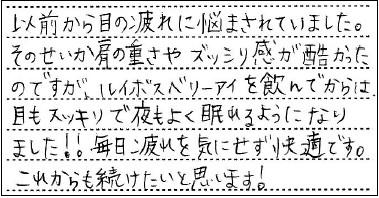 以前から目の疲れに悩まされていました。
そのせいか肩の重さや ズッシリ感が酷かった
のですが、ルイボスベリーアイを飲んでからは
目もスッキリで夜もよく眠れるようになり
ました!!毎日疲れを気にせず快適です。
これからも続けたいと思います!